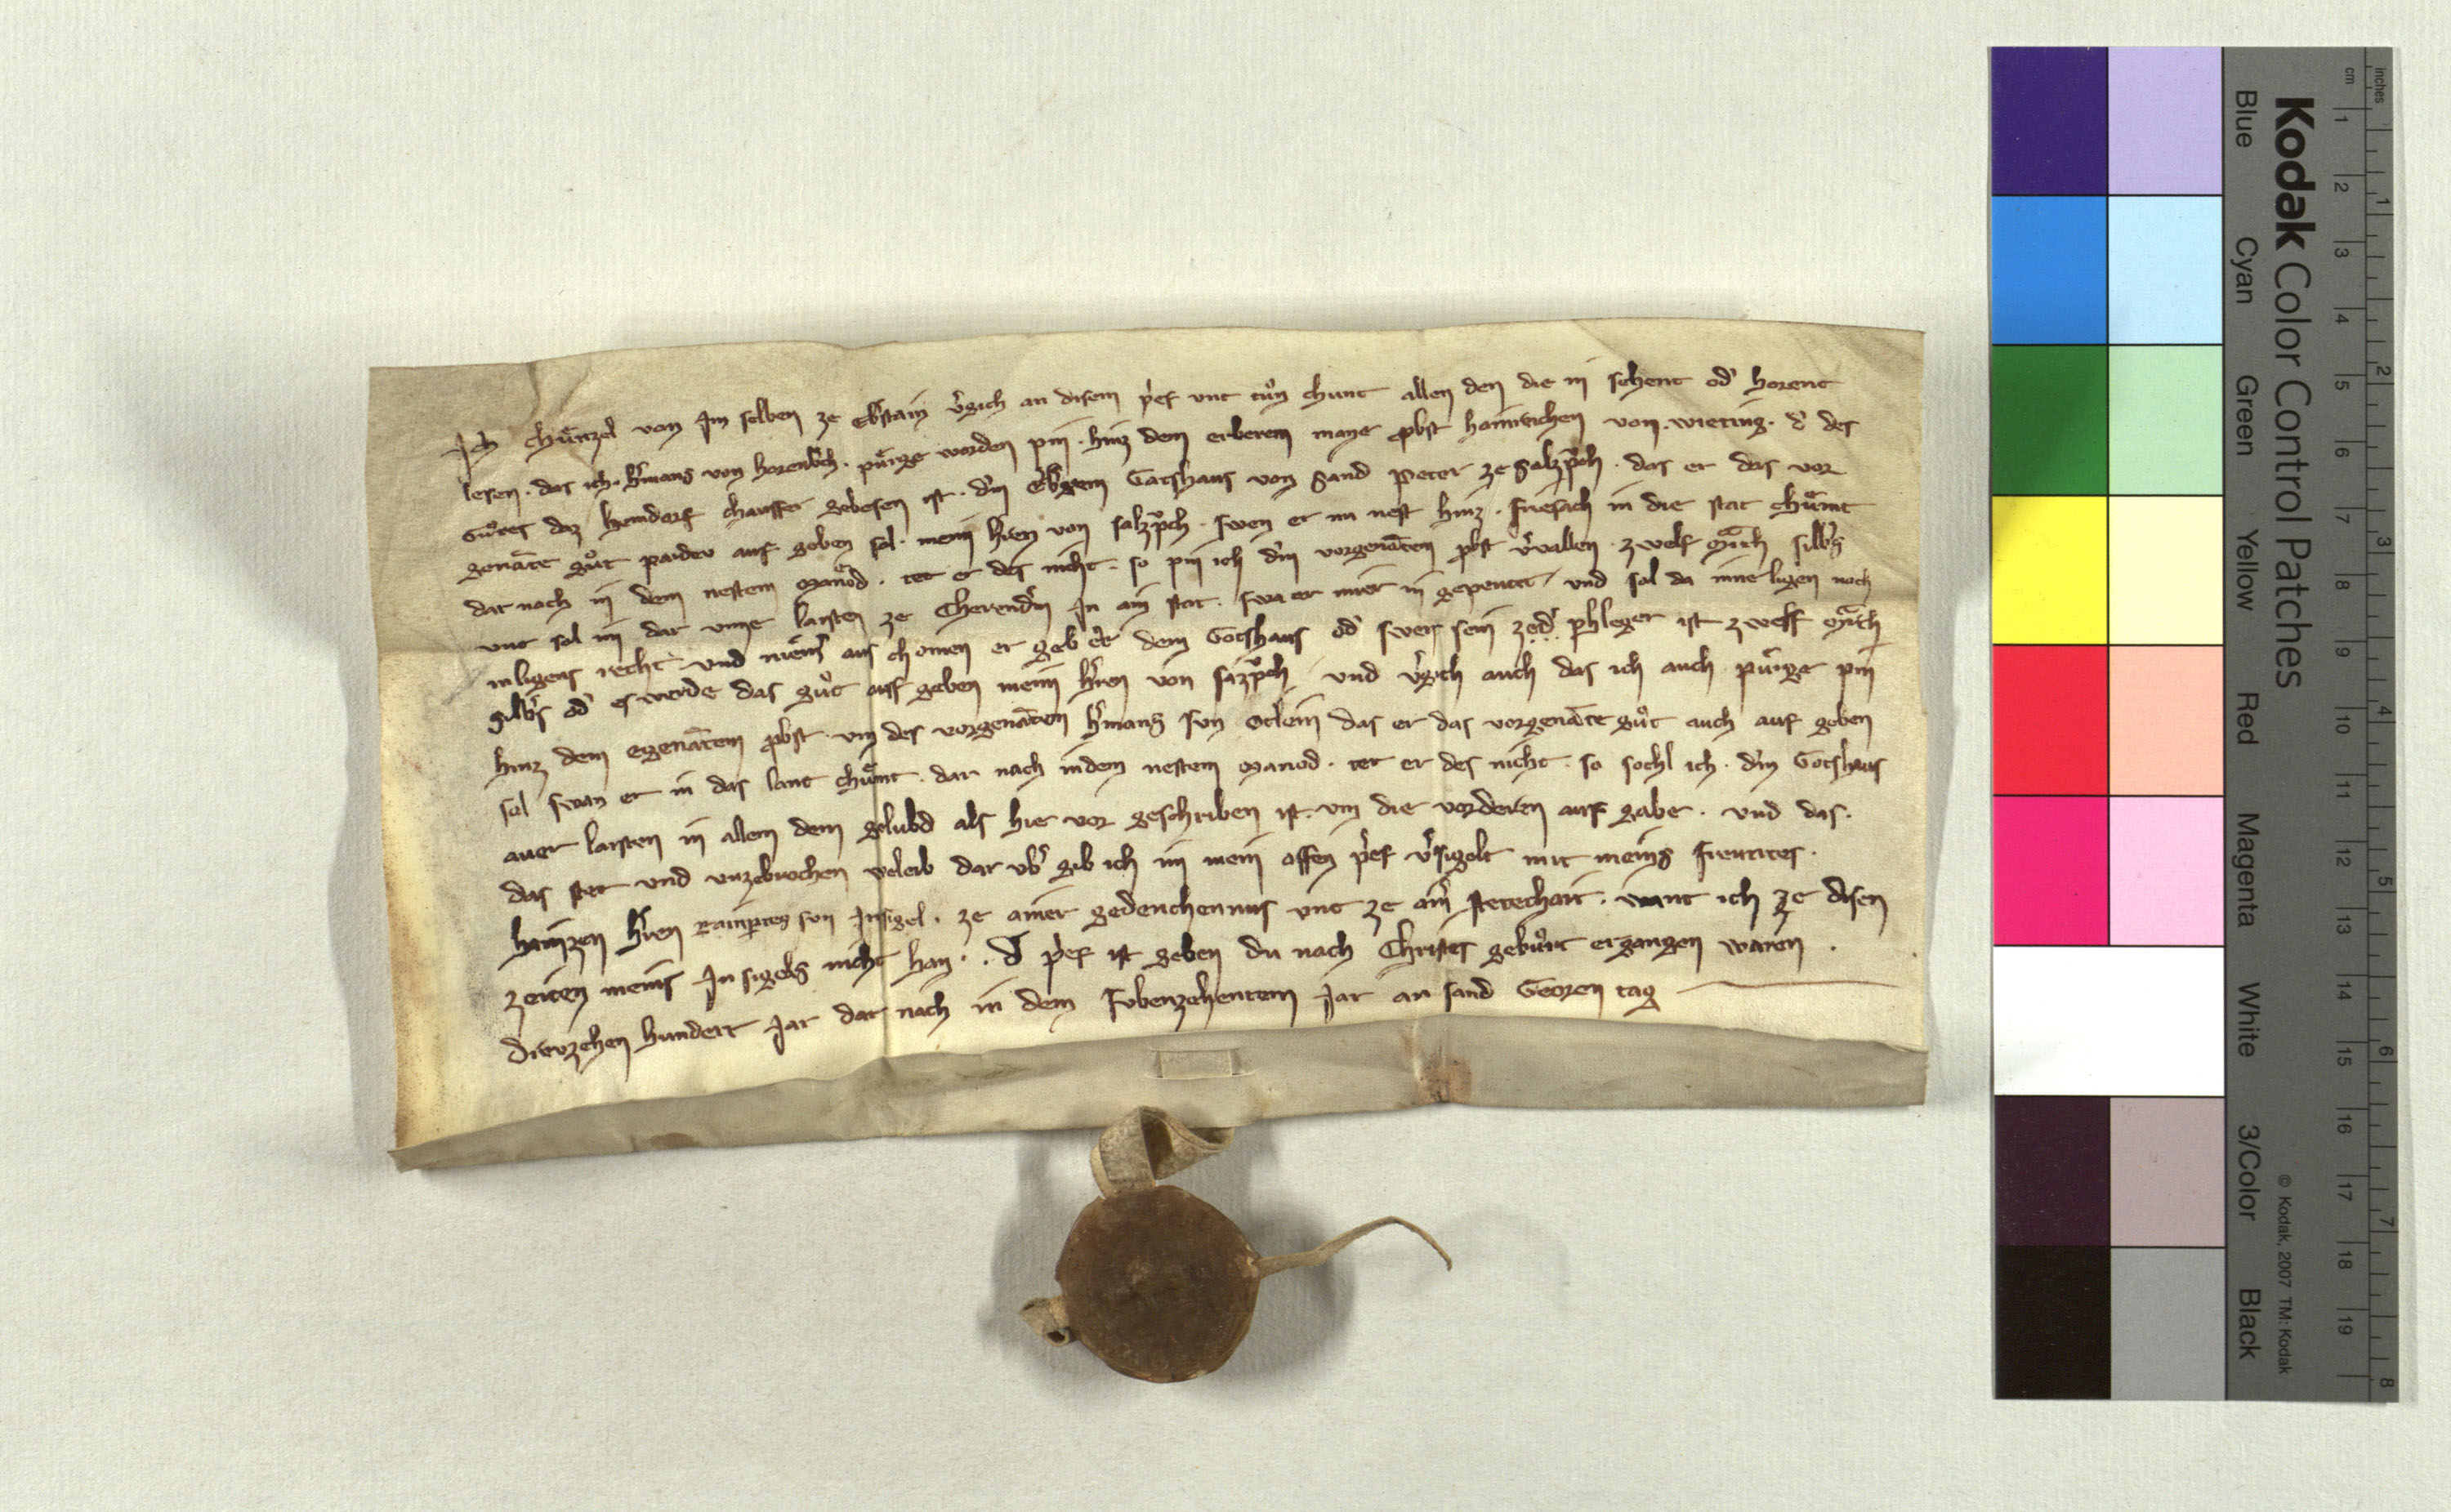 Ich chuͤnzel von Im selben ze Ebstain v̾gich an disem p̾ef vnt tuͦn chunt allen den die in sehent od̾ horent
lesen · das ich · h̾mans von horenb̾ch · puͤrge worden pin · hinz dem erberem mane p̾bst hainreichen von · wieting · d̾ des
guͦtes daz hemdorf chauffer gebesen ist · d̾m Erb̾gem Gotshaus von Sand Peter ze Salzp̾ch · das er das vor
genāte guͦt paidev auf geben sol · mein h̾ren von salzp̾ch · swen er nu nest hinz · friesach in die stat chuͤmt
dar nach in dem nestem Manod · tet er des nicht · so pin ich d̾m vorgenāten p̾bst v̾vallen · zwelf March silb̾s
vnt sol im dar vme laisten ze Cherend̾n In ain stat · swa er mir in gepeutet / vnd sol da inne ligen noch
inligens recht / vnd nieͤm̾ aus chomen er geb e̾ dem Gotshaus od̾ swer sein ze d̾ phleger ist zwelf March
Silb̾s od̾ es werde das guͦt auf geben meim h̾ren von Salzp̾ch / vnd v̾gich auch das ich auch puͤrge pin
hinz dem egenātem p̾bst · vm des vorgenāten h̾mans sun Otlein das er das vorgenāte guͦt auch auf geben
sol swan er in das lant chuͤmt · dar nach in dem nestem Manod · tet er des nicht · so sochl ich · d̾m Gotshaus
auer laisten in allem dem gelubd als hie vor geschriben ist · vm die vorderen auf gabe · vnd das ·
das stet vnd vnzebrochen beleib dar vb̾ gib ich im mein offen p̾ef v̾sigelt mit meins freuntes ·
hainzen h̾ren rainp̾tes sun Insigel · ze ainer gedenchennus vnt ze aim̾ stetechait · want ich ze disen
zeiten meins Insigels nicht han · · d̾ p̾ef ist geben du nach Christes gebuͦrt ergangen waren ·
drevzehen hundert Jar dar nach in dem Sybenzehentem Jar an sand Georen tag
Kodak Color Control Patches
Blue Cyan Green Yellow Red Magenta White 3/Color Black
© Kodak, 2007 TM: Kodak
cm 1 2 3 4 5 6 7 8 9 10 11 12 13 14 15 16 17 18 19
inches 1 2 3 4 5 6 7 8